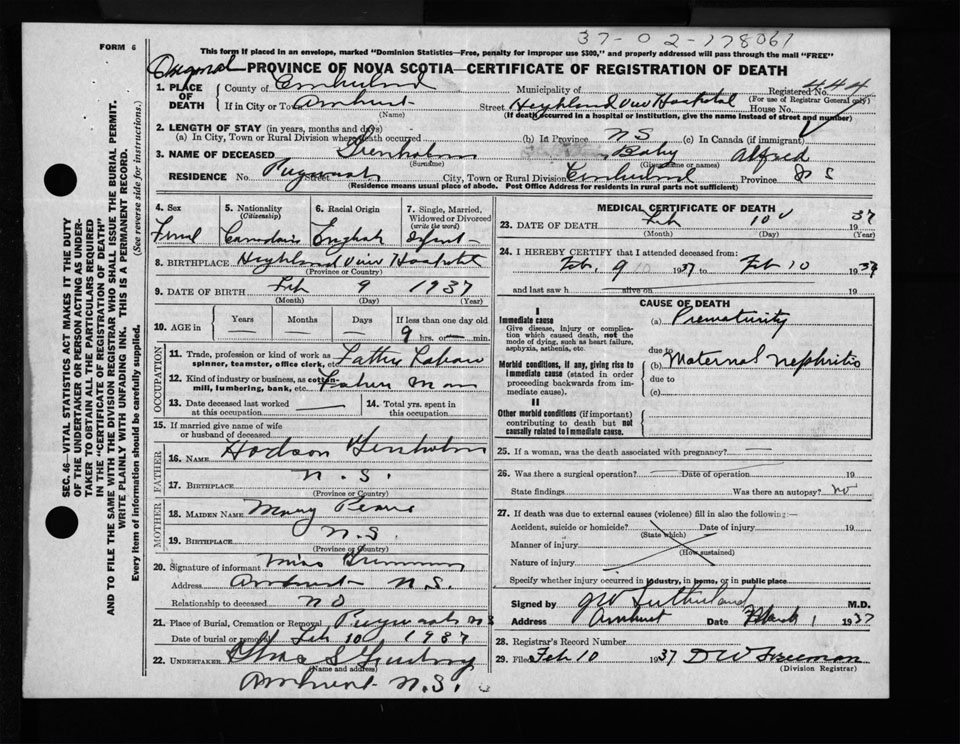 37-02-178061
FORM 6
This form if placed in an envelope, marked "Dominion Statistics—Free, penalty for improper use $300," and properly addressed will pass through the mail "FREE"
PROVINCE OF NOVA SCOTIA—CERTIFICATE OF REGISTRATION OF DEATH
1. PLACE OF DEATH
County of Cumberland Municipality of Registered No. 444
(For use of Registrar General only)
If in City or Town Amherst Street Highland View Hospital House No.
(Name) (If death occurred in a hospital or institution, give the name instead of street and number)
2. LENGTH OF STAY (in years, months and days)
(a) In City, Town or Rural Division where death occurred (b) In Province N S (c) In Canada (if immigrant)
3. NAME OF DECEASED Trenholm Baby Alfred
(Surname) (Given name or names)
RESIDENCE No. Pugwash Street City, Town or Rural Division Cumberland Province N S
(Residence means usual place of abode. Post Office Address for residents in rural parts not sufficient)
SEC. 46—VITAL STATISTICS ACT MAKES IT THE DUTY
OF THE UNDERTAKER OR PERSON ACTING AS UNDER-
TAKER TO OBTAIN ALL THE PARTICULARS REQUIRED
IN THE "CERTIFICATE OF REGISTRATION OF DEATH"
AND TO FILE THE SAME WITH THE DIVISION REGISTRAR WHO SHALL ISSUE THE BURIAL PERMIT.
WRITE PLAINLY WITH UNFADING INK. THIS IS A PERMANENT RECORD.
Every item of information should be carefully supplied. (See reverse side for instructions.)
4. Sex
5. Nationality
(Citizenship)
Canadian
6. Racial Origin
English
7. Single, Married, Widowed or Divorced
(write the word)
Infant
8. BIRTHPLACE Highland View Hospital
(Province or Country)
9. DATE OF BIRTH Feb 9 1937
(Month) (Day) (Year)
10. AGE in Years Months Days If less than one day old
9 hrs. or — min.
OCCUPATION
11. Trade, profession or kind of work as
spinner, teamster, office clerk, etc. Father Labour
12. Kind of industry or business, as cotton-
mill, lumbering, bank, etc. Labour Man
13. Date deceased last worked
at this occupation
14. Total yrs. spent in
this occupation
15. If married give name of wife
or husband of deceased
FATHER
16. NAME Hodson Trenholm
17. BIRTHPLACE N. S.
(Province or Country)
MOTHER
18. MAIDEN NAME Mary
19. BIRTHPLACE N.S.
(Province or Country)
20. Signature of informant Miss
Address Amherst N.S.
Relationship to deceased no
21. Place of Burial, Cremation or Removal Pugwash NS
Date of burial or removal Feb 10 1937
22. UNDERTAKER
(Name and address)
Amherst N.S.
MEDICAL CERTIFICATE OF DEATH
23. DATE OF DEATH Feb 10 1937
(Month) (Day) (Year)
24. I HEREBY CERTIFY that I attended deceased from:
Feb. 9 1937 to Feb 10 1937
and last saw h alive on 19
CAUSE OF DEATH
I
Immediate cause
Give disease, injury or complica-
tion which caused death, not the
mode of dying, such as heart failure,
asphyxia, asthenia, etc.
(a) Prematurity
due to
Morbid conditions, if any, giving rise to
immediate cause (stated in order
proceeding backwards from im-
mediate cause).
(b) Maternal nephritis
due to
(c)
II
Other morbid conditions (if important)
contributing to death but not
causally related to immediate cause.
25. If a woman, was the death associated with pregnancy?
26. Was there a surgical operation? Date of operation 19
State findings Was there an autopsy? no
27. If death was due to external causes (violence) fill in also the following:—
Accident, suicide or homicide? Date of injury 19
(State which)
Manner of injury
(How sustained)
Nature of injury
Specify whether injury occurred in industry, in home, or in public place
Signed by J W Sutherland M.D.
Address Amherst Date March 1 1937
28. Registrar's Record Number
29. Filed Feb 10 1937 D W Freeman
(Division Registrar)